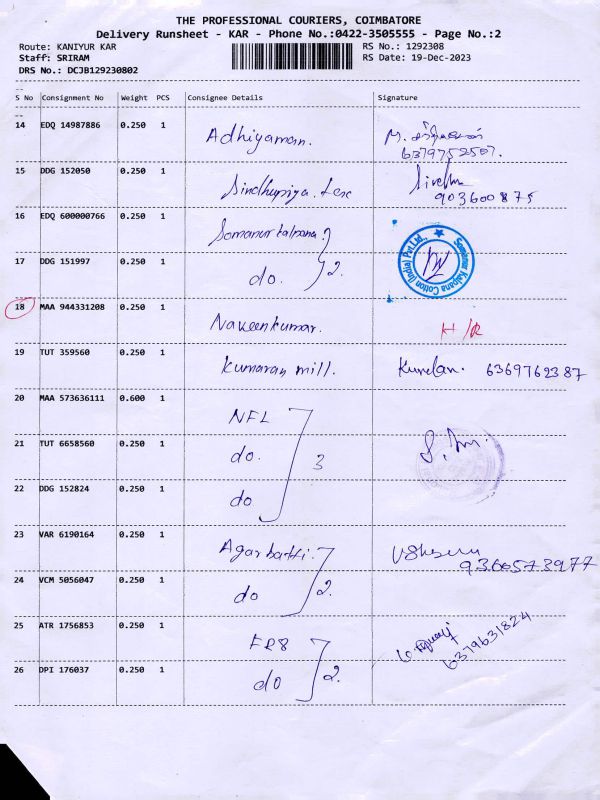 THE PROFESSIONAL COURIERS, COIMBATORE
Delivery Runsheet - KAR - Phone No.:0422-3505555 - Page No.:2
Route: KANIYUR KAR RS No.: 1292308
Staff: SRIRAM RS Date: 19-Dec-2023
DRS No.: DCJB129230802
S No Consignment No Weight PCS Consignee Details Signature
14 EDQ 14987886 0.250 1 Adhiyaman. M.
6379752507.
15 DDG 152050 0.250 1
903600875
16 EDQ 600000766 0.250 1 Somanur kalpana.
Somanur Kalpana Cotton (India) Pvt.Ltd.,
17 DDG 151997 0.250 1 do. 2.
18 MAA 944331208 0.250 1 Naveenkumar. H/R
19 TUT 359560 0.250 1 Kumaran mill. 6369762387
20 MAA 573636111 0.600 1 NFL
21 TUT 6658560 0.250 1 do. 3
22 DDG 152824 0.250 1 do
23 VAR 6190164 0.250 1 Agarbatti.
9360573977
24 VCM 5056047 0.250 1 do 2.
25 ATR 1756853 0.250 1 FR8
6379631824
26 DPI 176037 0.250 1 do 2.